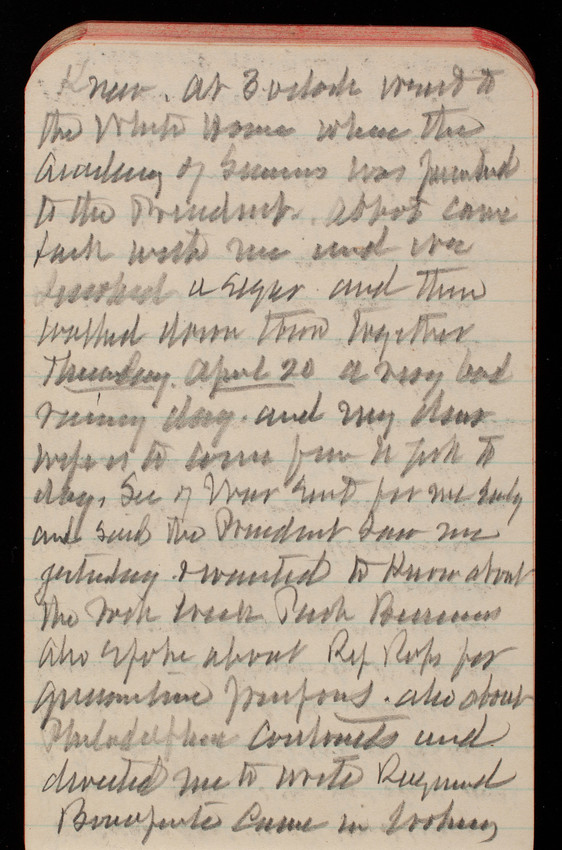 Knew. at 3 oclock went to
the White House where the
Academy of Sciences was presented
to the President. Abbot came
back with me and we
smoked a segar and then
walked down town together
Thursday April 20 a very bad
rainy day. and my dear
wife is to come from N York to
day. Sec of War sent for me early
and said the President saw me
yesterday & wanted to know about
the Rock Creek Park Business
also spoke about for
quarantine purposes. also about
Philadelphia contracts and
directed me to write Raymond
Bonaparte came in looking